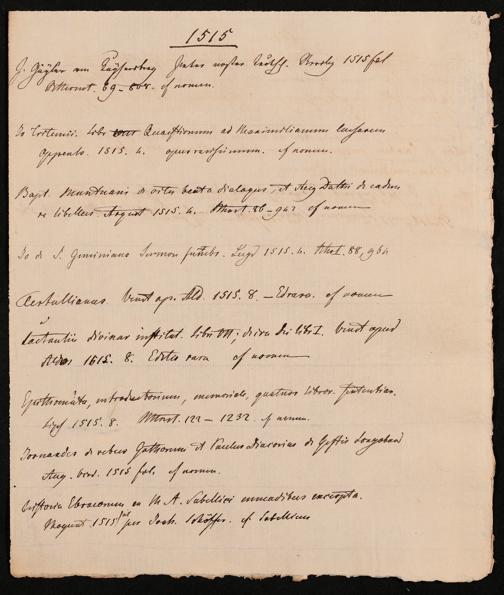 1515
J. Gayler von Kaysersberg Pater noster 1515 fol
69 – 808. cf nomen.
Jo Tritemii. Libr Quaestionum ad Maximilianum Caesarem
Oppenh. 1515. 4. opus rarissimum. cf nomen.
Bapt. Mantuani de vita beata dialogus, et Aug Dathi de
libellus August 1515. 4. 86 – 942 cf nomen
Jo de S. Geminiano Sermon funebr. Lugd 1515. 4. 88, 964
Tertullianus. Venet ap. Ald. 1515. 8. – Ed rara. cf nomen
Lactantii divinar institut. libri VII; de ira Dei libr I. Venet apud
Aldos 1615. 8. Editio rara cf nomen
introductorium, memoriale, quatuor libror. sententiar.
1515. 8. 122 – 1232. cf nomen.
Jornandes de rebus Gothorum et Paulus Diaconus de Gestis Longobard
Aug. Vind. 1515 fol. cf nomen.
Historia Ebraeorum ex M. A. Sabellici enneadibus excerpta.
Mogunt. 1515 fol per Joah. Schöffer. cf Sabellicus